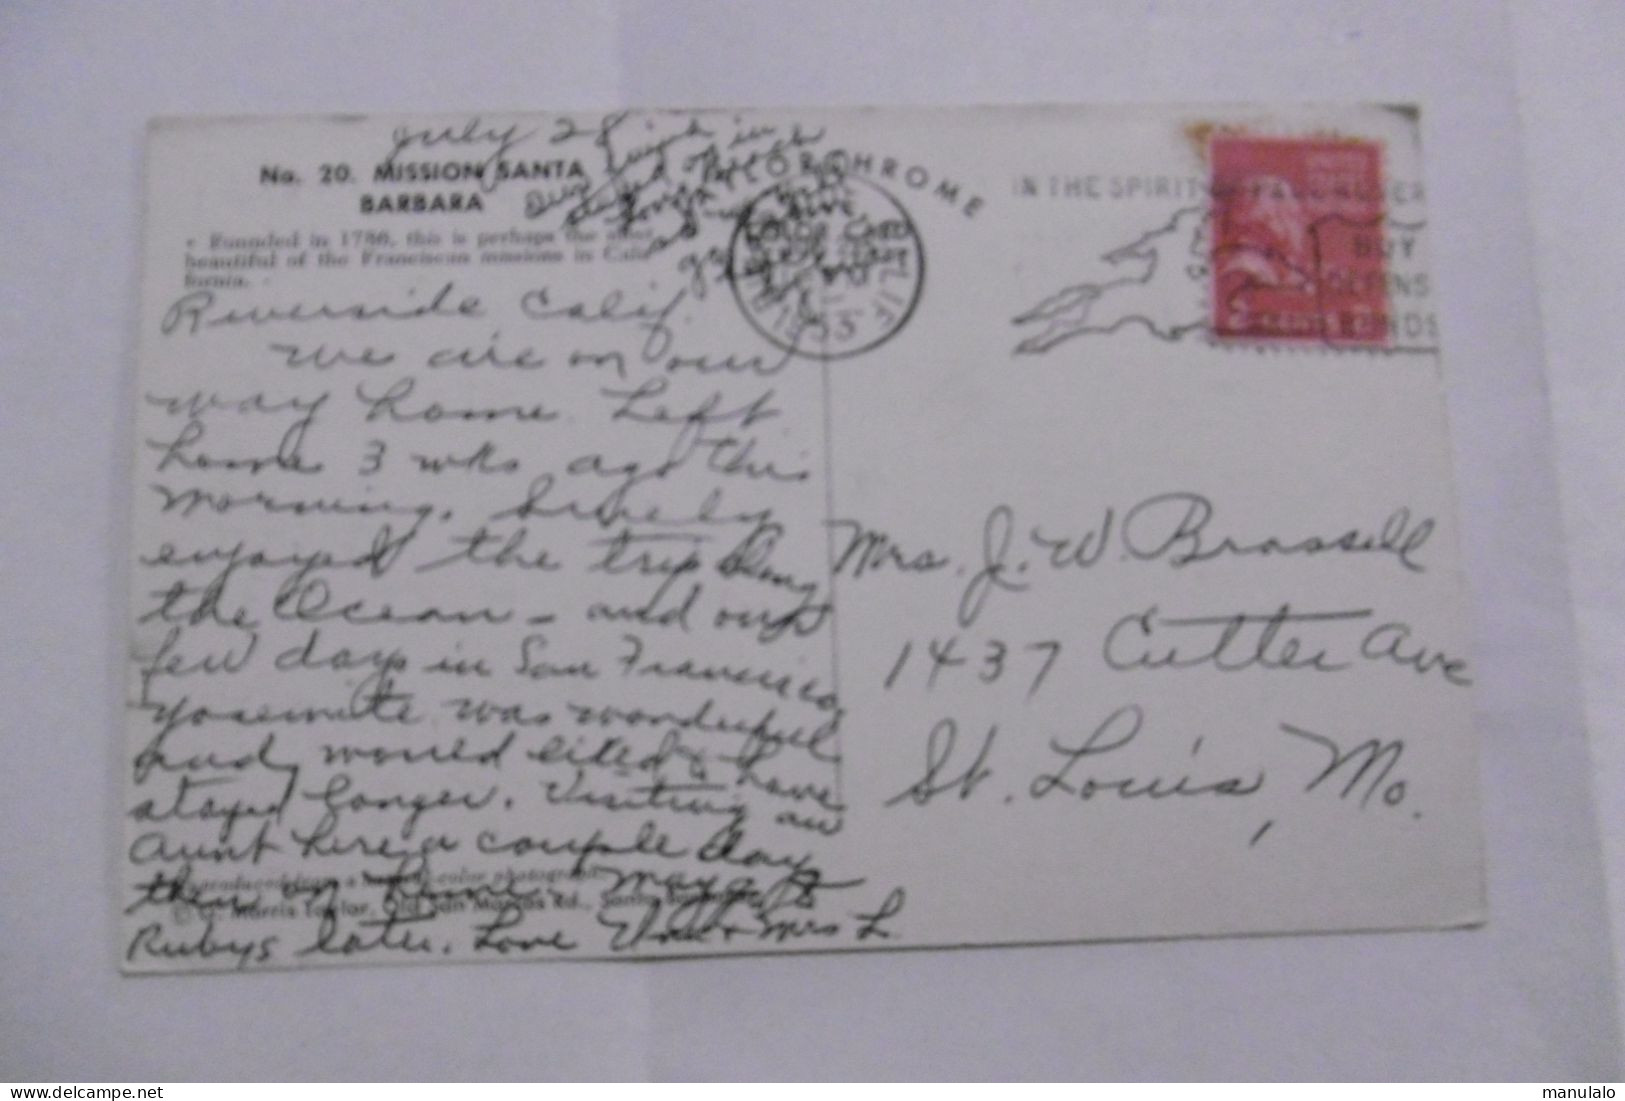 July 28
No. 20. MISSION SANTA
BARBARA
Founded in 1786, this is perhaps the most
beautiful of the Franciscan missions in Cali-
fornia.
Riverside Calif.
We are on our
way home. Left
home 3 wks ago this
morning. Surely
enjoyed the trip along
the Ocean - and our
few days in San Francisco,
Yosemite was wonderful
and would liked to have
stayed longer. Visiting an
Aunt here a couple days
then on home. May go to
Rubys later. Love & Mrs L
Reproduced from a color photograph
© Marcia Old San Marcos Rd., Santa
COLOR CARD
CALIF.
IN THE SPIRIT OF PAUL REVERE
BUY
DEFENSE
BONDS
UNITED STATES
2 CENTS 2
Mrs. J. W. Brassell
1437 Cutter Ave
St. Louis, Mo.
manulalo